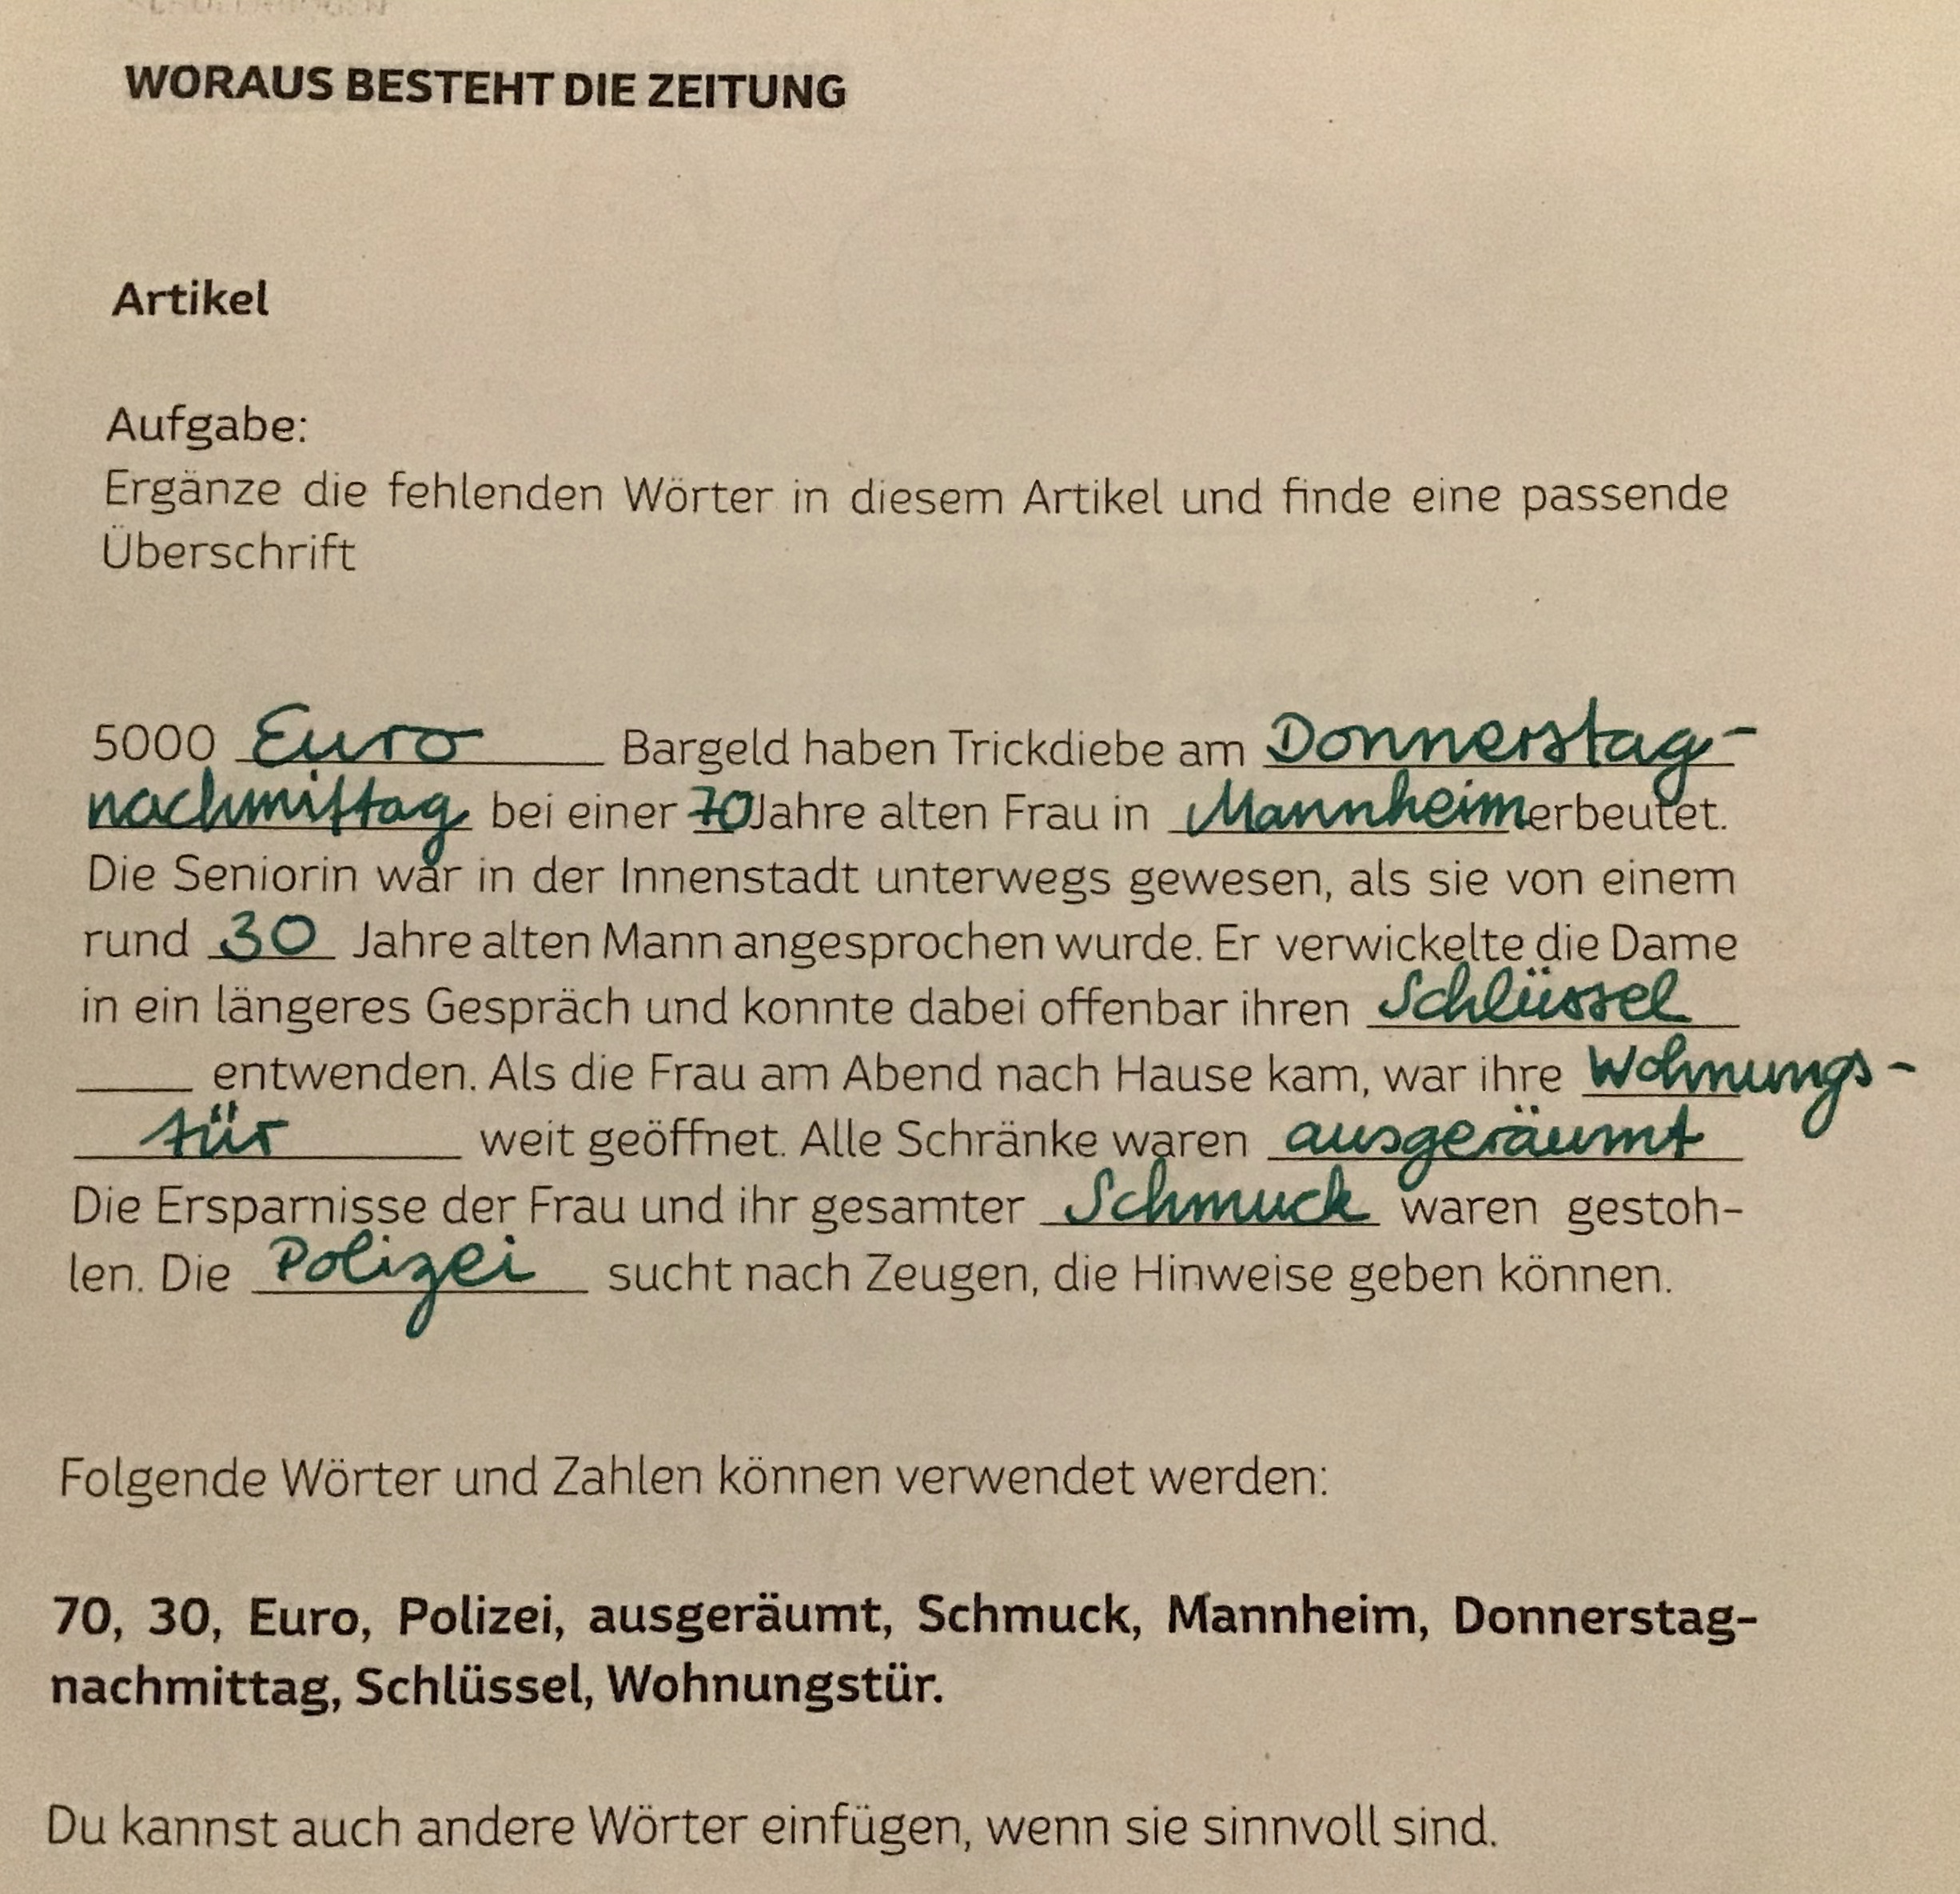 WORAUS BESTEHT DIE ZEITUNG
Artikel
Aufgabe:
Ergänze die fehlenden Wörter in diesem Artikel und finde eine passende
Überschrift
5000 Euro Bargeld haben Trickdiebe am Donnerstag-
nachmittag bei einer 70 Jahre alten Frau in Mannheim erbeutet.
Die Seniorin war in der Innenstadt unterwegs gewesen, als sie von einem
rund 30 Jahre alten Mann angesprochen wurde. Er verwickelte die Dame
in ein längeres Gespräch und konnte dabei offenbar ihren Schlüssel
____ entwenden. Als die Frau am Abend nach Hause kam, war ihre Wohnungs-
tür weit geöffnet. Alle Schränke waren ausgeräumt
Die Ersparnisse der Frau und ihr gesamter Schmuck waren gestoh-
len. Die Polizei sucht nach Zeugen, die Hinweise geben können.
Folgende Wörter und Zahlen können verwendet werden:
70, 30, Euro, Polizei, ausgeräumt, Schmuck, Mannheim, Donnerstag-
nachmittag, Schlüssel, Wohnungstür.
Du kannst auch andere Wörter einfügen, wenn sie sinnvoll sind.